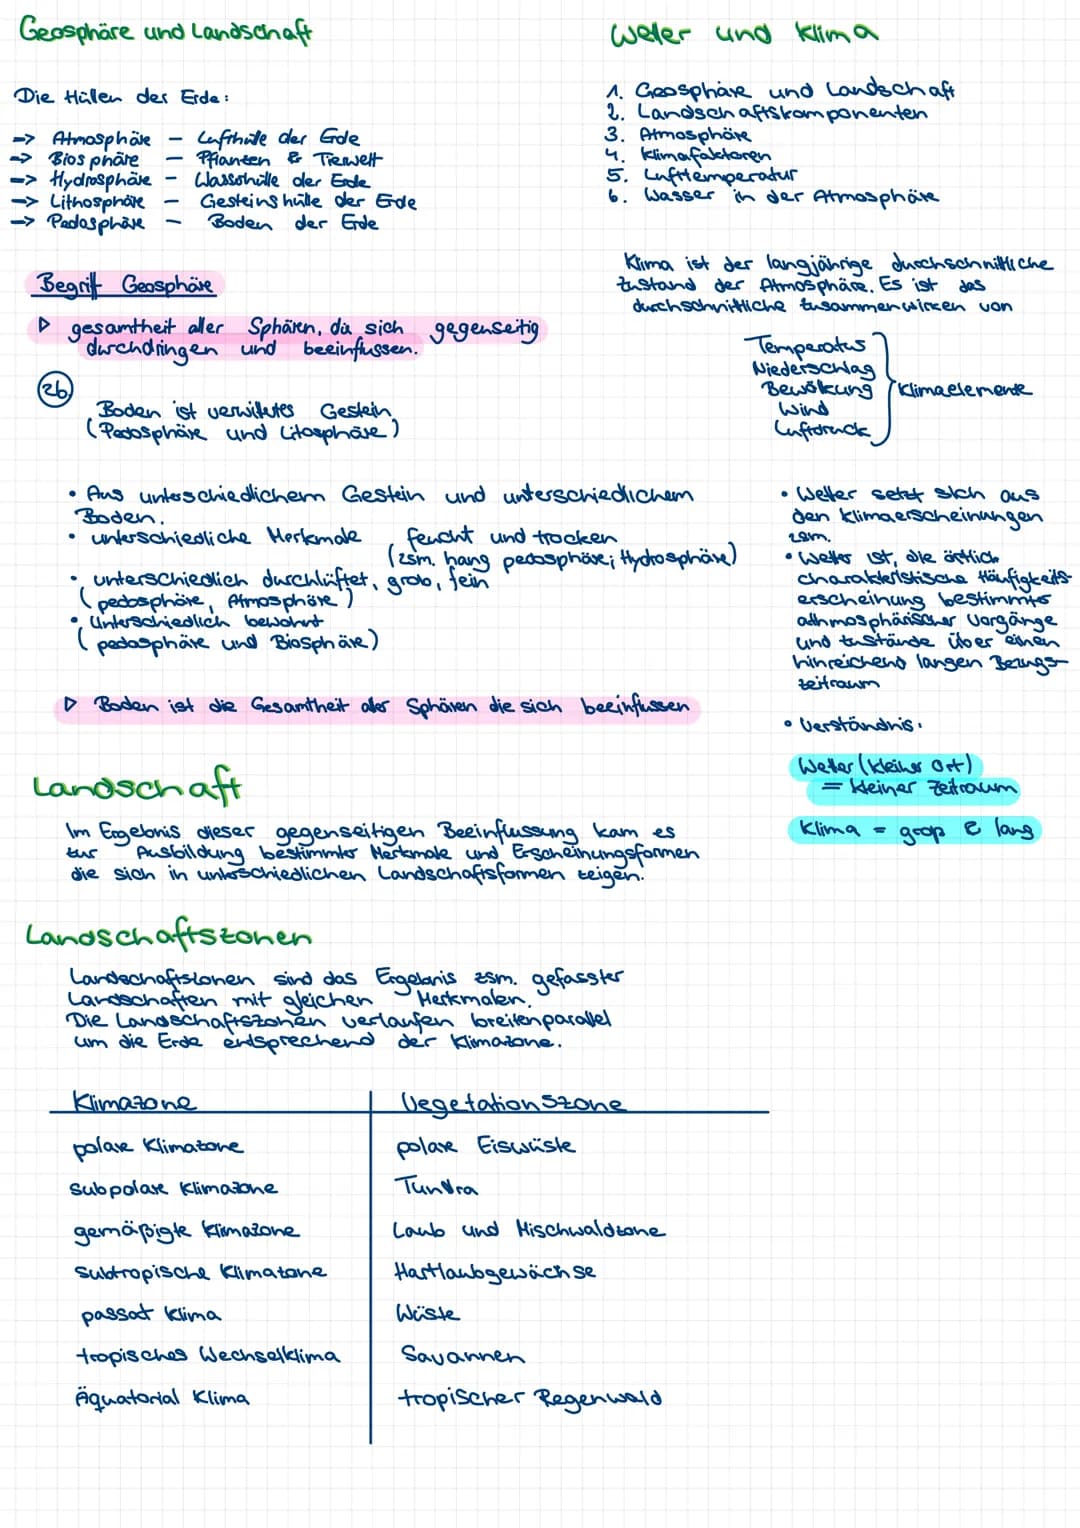 Geosphäre und Landschaft
Die Hüllen der Erde:
=> Atmosphäre – Lufthülle der Erde
=> Biosphäre – Pflanzen & Tierwelt
=> Hydrosphäre – Wasserhülle der Erde
=> Lithosphäre – Gesteinshülle der Erde
=> Pedosphäre – Boden der Erde
Begriff Geosphäre
▷ gesamtheit aller Sphären, die sich gegenseitig
durchdringen und beeinflussen.
2b)
Boden ist verwittertes Gestein
(Pedosphäre und Litosphäre)
• Aus unterschiedlichem Gestein und unterschiedlichem
Boden.
• unterschiedliche Merkmale, feucht und trocken
(zsm. hang pedosphäre; Hydrosphäre)
• unterschiedlich durchlüftet, grob, fein
(pedosphäre, Atmosphäre)
• Unterschiedlich bewohnt
(pedosphäre und Biosphäre)
▷ Boden ist die Gesamtheit aller Sphären die sich beeinflussen
Landschaft
Im Ergebnis dieser gegenseitigen Beeinflussung kam es
zur Ausbildung bestimmter Merkmale und Erscheinungsformen
die sich in unterschiedlichen Landschaftsformen zeigen.
Landschaftszonen
Landschaftszonen sind das Ergebnis zsm. gefasster
Landschaften mit gleichen Merkmalen.
Die Landschaftszonen verlaufen breitenparallel
um die Erde entsprechend der Klimazone.
Klimazone Vegetationszone
polare Klimazone polare Eiswüste
subpolare Klimazone Tundra
gemäßigte Klimazone Laub und Mischwaldzone
subtropische Klimazone Hartlaubgewächse
passat Klima Wüste
tropisches Wechselklima Savannen
Äquatorial Klima tropischer Regenwald
Wetter und Klima
1. Geosphäre und Landschaft
2. Landschaftskomponenten
3. Atmosphäre
4. Klimafaktoren
5. Lufttemperatur
6. Wasser in der Atmosphäre
Klima ist der langjährige durchschnittliche
Zustand der Atmosphäre. Es ist das
durchschnittliche Zusammenwirken von
Temperatur
Niederschlag
Bewölkung Klimaelemente
Wind
Luftdruck
• Wetter setzt sich aus
den Klimaerscheinungen
zsm.
• Wetter ist, die örtlich
charakteristische Häufigkeits-
erscheinung bestimmter
athmosphärischer Vorgänge
und Zustände über einen
hinreichend langen Bezugs-
zeitraum
• Verständnis:
Wetter (kleiner Ort)
= kleiner Zeitraum
Klima = groß & lang